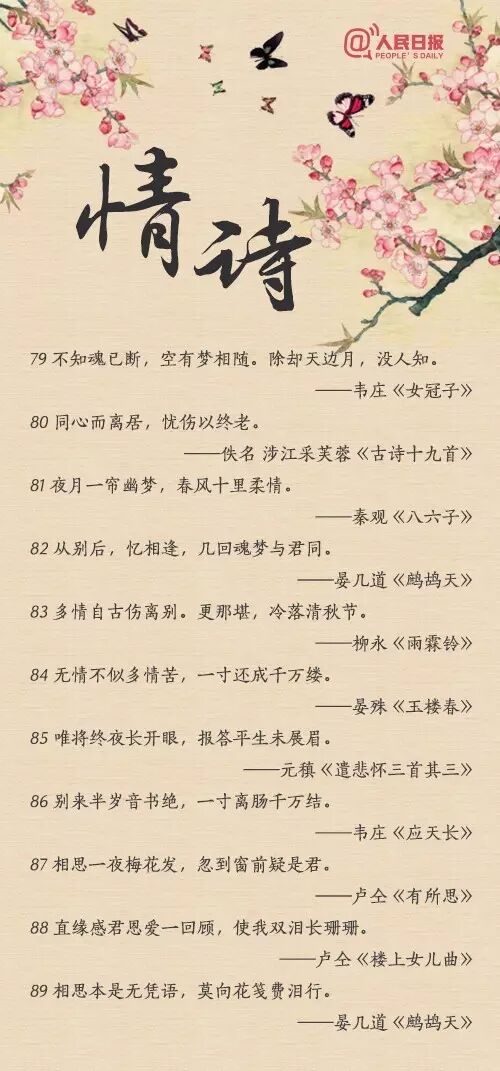 人民日报
PEOPLE'S DAILY
情诗
79 不知魂已断，空有梦相随。除却天边月，没人知。
——韦庄《女冠子》
80 同心而离居，忧伤以终老。
——佚名 涉江采芙蓉《古诗十九首》
81 夜月一帘幽梦，春风十里柔情。
——秦观《八六子》
82 从别后，忆相逢，几回魂梦与君同。
——晏几道《鹧鸪天》
83 多情自古伤离别。更那堪，冷落清秋节。
——柳永《雨霖铃》
84 无情不似多情苦，一寸还成千万缕。
——晏殊《玉楼春》
85 唯将终夜长开眼，报答平生未展眉。
——元稹《遣悲怀三首其三》
86 别来半岁音书绝，一寸离肠千万结。
——韦庄《应天长》
87 相思一夜梅花发，忽到窗前疑是君。
——卢仝《有所思》
88 直缘感君恩爱一回顾，使我双泪长珊珊。
——卢仝《楼上女儿曲》
89 相思本是无凭语，莫向花笺费泪行。
——晏几道《鹧鸪天》